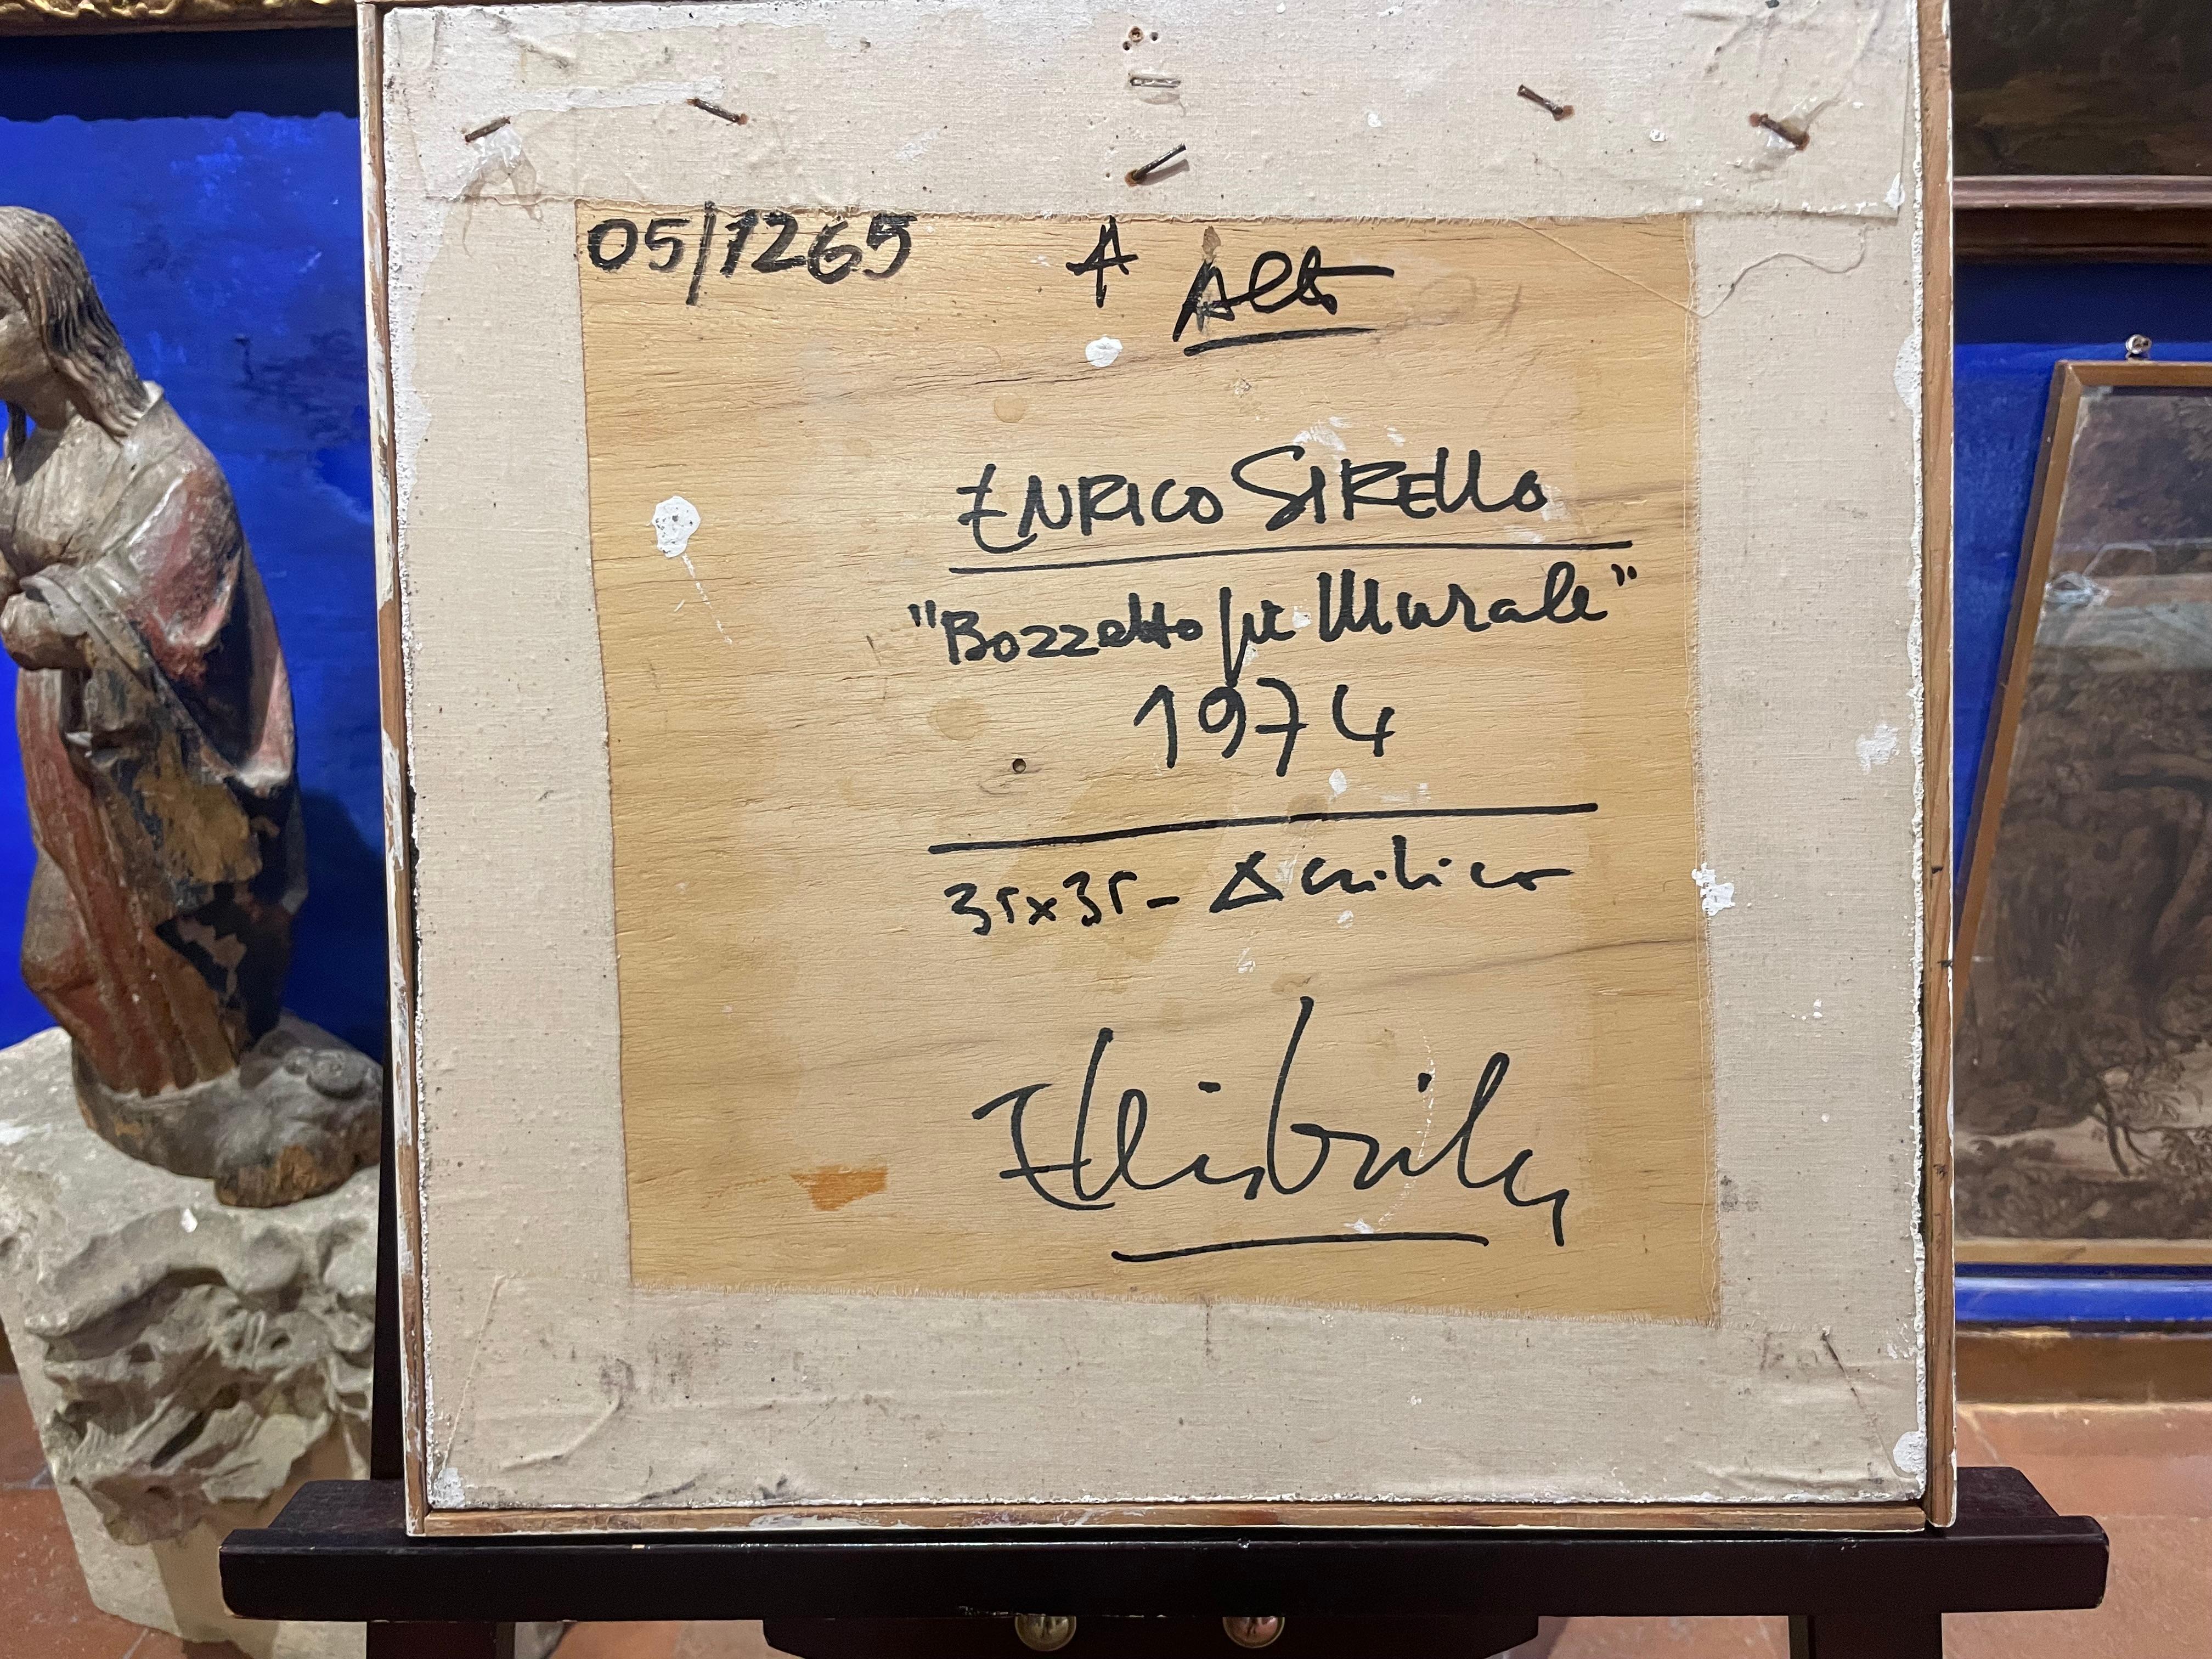 05/1265 Alto
ENRICO SIRELLO
"Bozzetto per Murale"
1974
35x35 - Acrilico